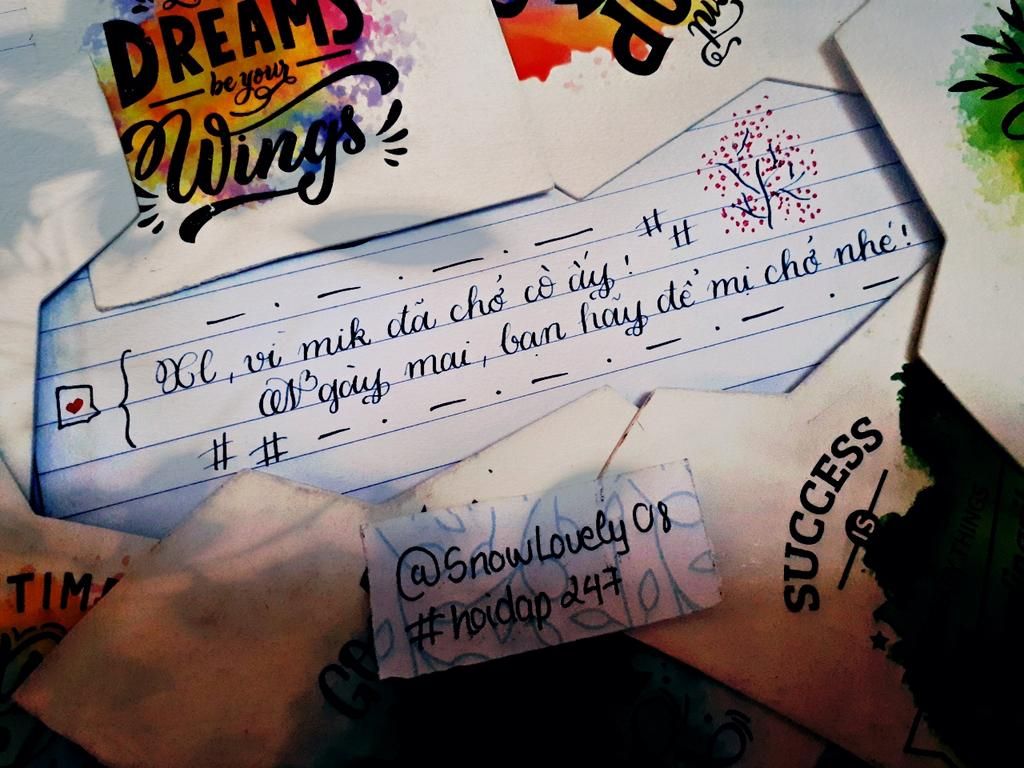 DREAMS
be your
Wings
# #
Xl, vì mik đã chở cò ấy!
Ngày mai, bạn hãy để mị chở nhé!
# #
@SnowLovely08
#hoidap247
SUCCESS
IS
TIM
THINGS